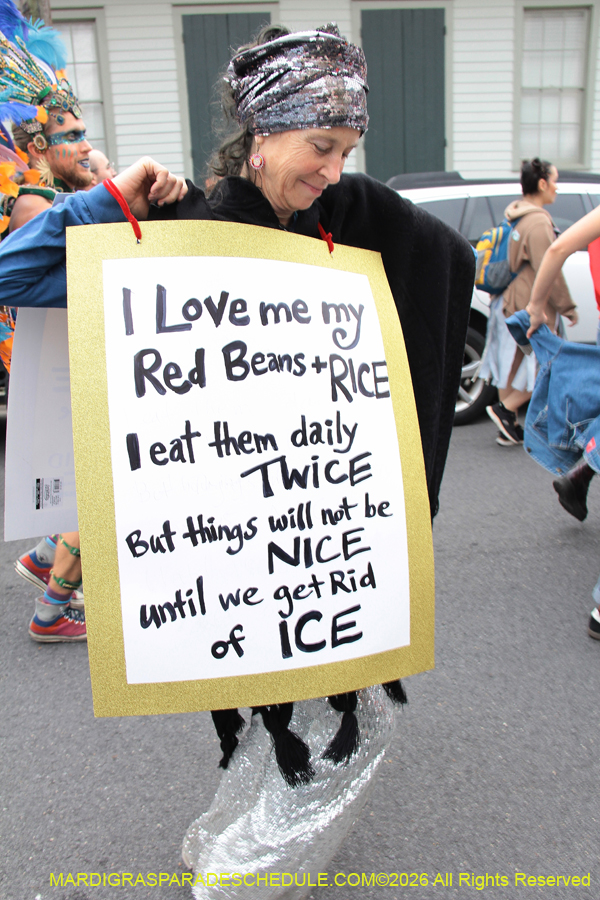 I Love me my
Red Beans + RICE
I eat them daily
TWICE
But things will not be
NICE
until we get Rid
of ICE
MARDIGRASPARADESCHEDULE.COM©2026 All Rights Reserved